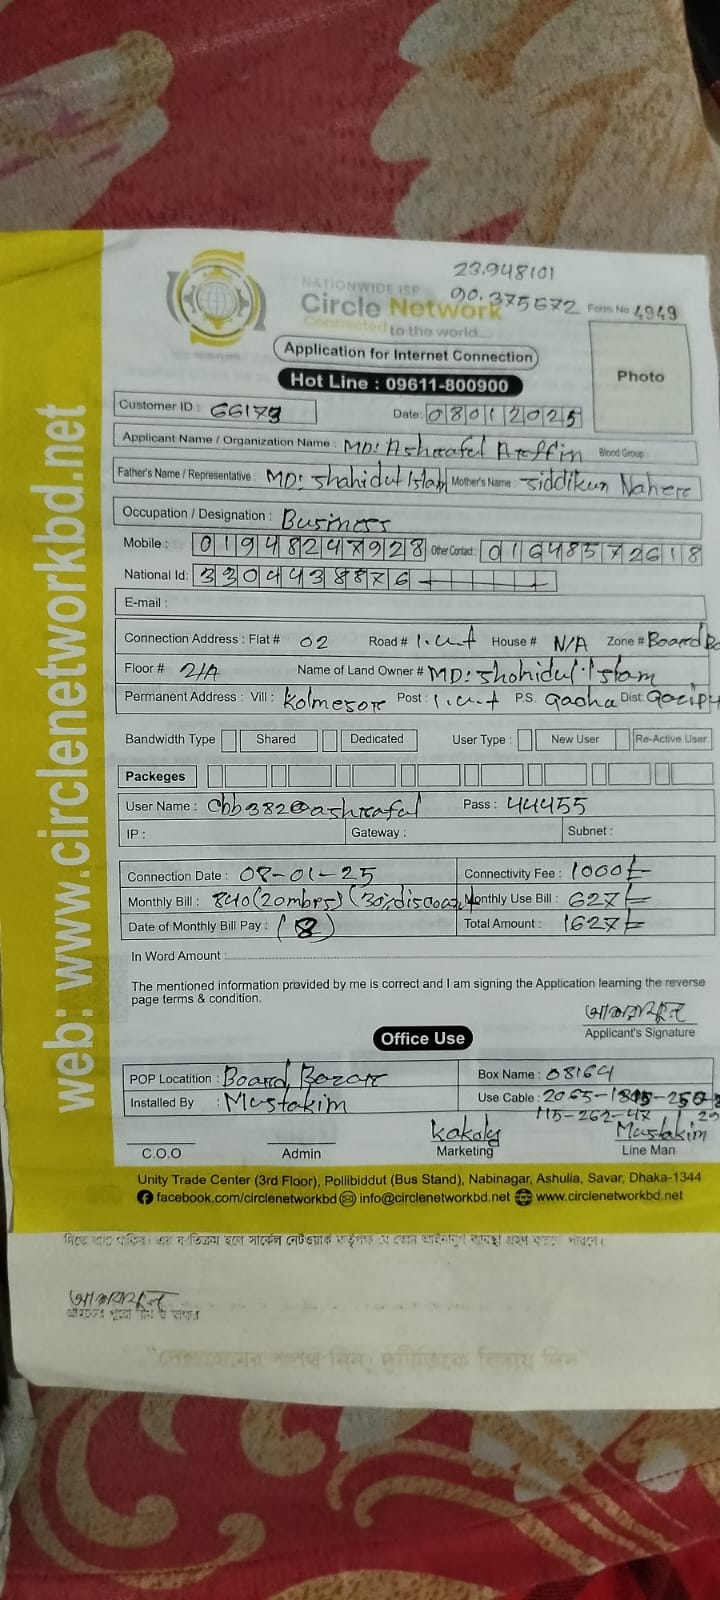 23.948101
90.375672
NATIONWIDE ISP
Circle Network
Connected to the world...
Form No 4949
Application for Internet Connection
Hot Line : 09611-800900
Photo
Customer ID : 66179
Date: 08012025
Applicant Name / Organization Name : MD: Ashraful Areffin Blood Group
Father's Name / Representative : MD: Shahidul Islam Mother's Name : Siddikun Nahere
Occupation / Designation : Business
Mobile : 01948247928 Other Contact 01648572618
National Id: 3304438876
E-mail :
Connection Address : Flat # 02 Road # I.U.T House # N/A Zone # Board Ba
Floor # 2/A Name of Land Owner # MD: Shohidul Islam
Permanent Address : Vill : Kolmesor Post : I.U.T P.S. Gacha Dist: Gazipu
Bandwidth Type Shared Dedicated User Type : New User Re-Active User
Packeges
User Name : cbb382@ashraful Pass : 44455
IP : Gateway : Subnet :
Connection Date : 08-01-25 Connectivity Fee : 1000/-
Monthly Bill : 840(20mbps) (30% discount) Monthly Use Bill : 627/-
Date of Monthly Bill Pay : (8) Total Amount : 1627/-
In Word Amount :
The mentioned information provided by me is correct and I am signing the Application learning the reverse
page terms & condition.
আশরাফুল
Applicant's Signature
Office Use
POP Locatition : Board Bazar Box Name : 08164
Installed By : Mustakim Use Cable : 2065-
115-262-47
Kakoly Mustakim
C.O.O Admin Marketing Line Man
Unity Trade Center (3rd Floor), Pollibiddut (Bus Stand), Nabinagar, Ashulia, Savar, Dhaka-1344
facebook.com/circlenetworkbd info@circlenetworkbd.net www.circlenetworkbd.net
web: www.circlenetworkbd.net
দিতে বাধ্য থাকিব। এর ব্যতিক্রম হলে সার্কেল নেটওয়ার্ক কর্তৃপক্ষ যে কোন আইনানুগ ব্যবস্থা গ্রহণ করতে পারবে।
আশরাফুল
গ্রাহকের পুরো নাম ও স্বাক্ষর